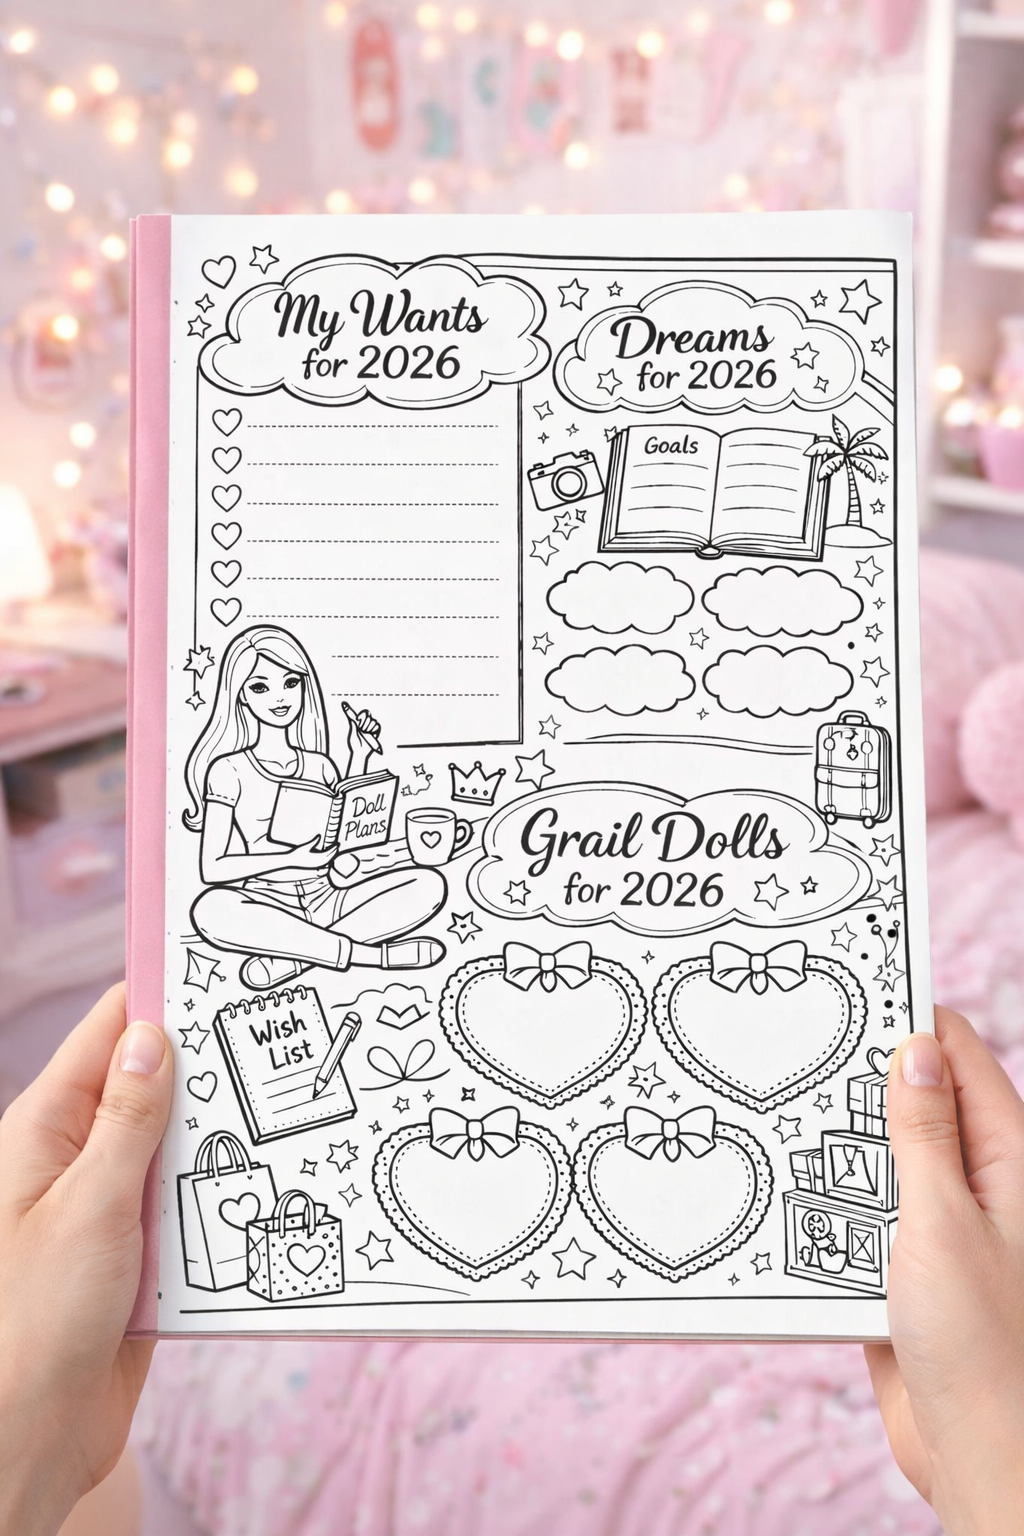 My Wants
for 2026
Dreams
for 2026
Goals
Doll
Plans
Grail Dolls
for 2026
Wish
List